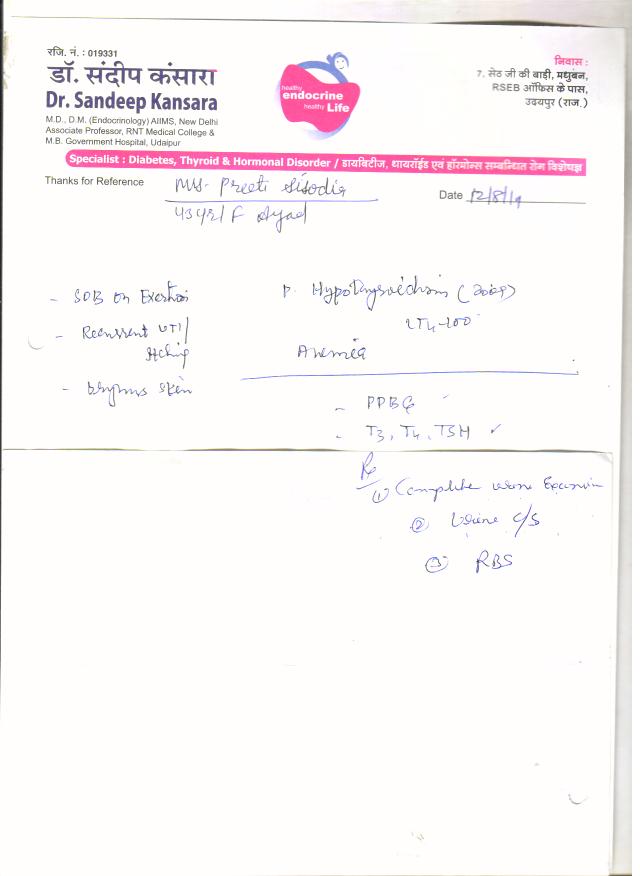 रजि. नं. : 019331
डॉ. संदीप कंसारा
Dr. Sandeep Kansara
M.D., D.M. (Endocrinology) AIIMS, New Delhi
Associate Professor, RNT Medical College &
M.B. Government Hospital, Udaipur
healthy
endocrine
healthy Life
निवास :
7, सेठ जी की बाड़ी, मधुबन,
RSEB ऑफिस के पास,
उदयपुर (राज.)
Specialist : Diabetes, Thyroid & Hormonal Disorder / डायबिटीज, थायरॉईड एवं हॉरमोन्स सम्बन्धित रोग विशेषज्ञ
Thanks for Reference Ms. Preeti Sisodia
Date 12/8/19
43yr/F Ayad
- SOB on Exertion
Hypothyroidism (2009)
LT4-100
- Recurrent UTI/
Itching
Anemia
- skin
- PPBG
- T3, T4, TSH ✓
Rx
① Complete urine
② Urine C/S
③ RBS